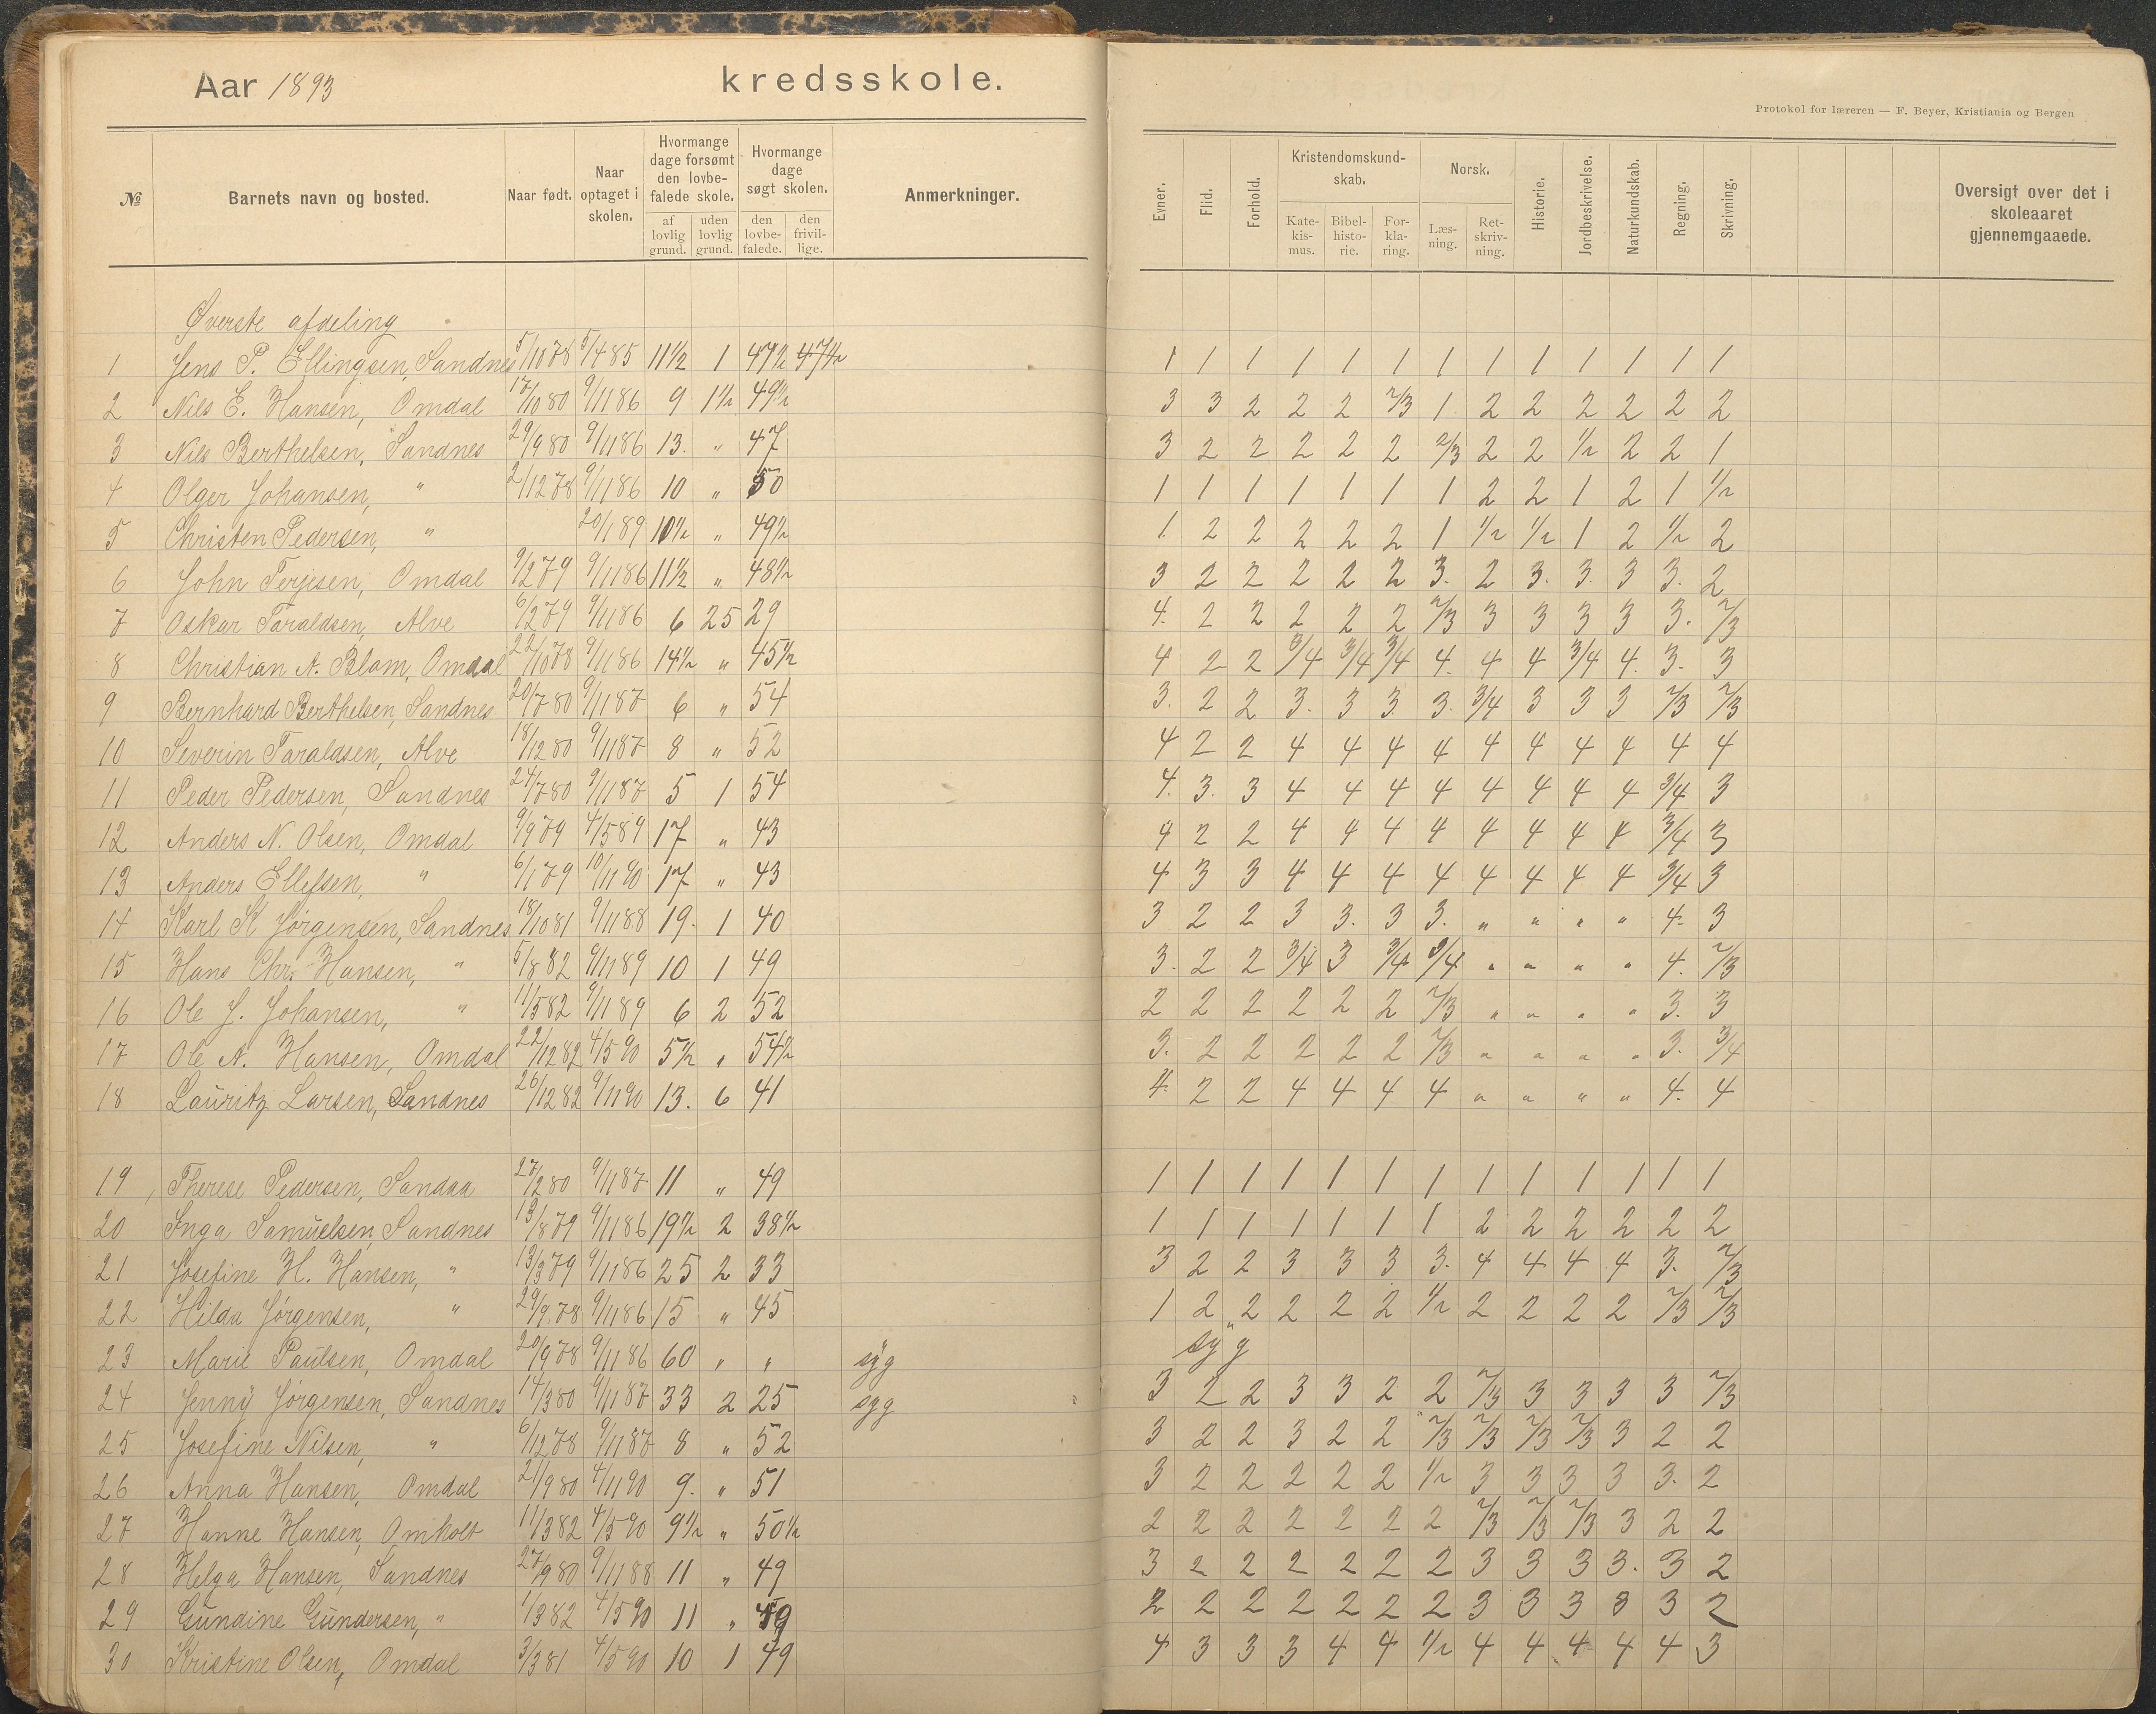 Aar 1893 kredsskole.
Protokol for læreren — F. Beyer, Kristiania og Bergen
№ Barnets navn og bosted. Naar født. Naar optaget i skolen. Hvormange dage forsømt den lovbefalede skole. af lovlig grund. uden lovlig grund. Hvormange dage søgt skolen. den lovbefalede. den frivillige. Anmerkninger. Evner. Flid. Forhold. Kristendomskundskab. Katekismus. Bibelhistorie. Forklaring. Norsk. Læsning. Retskrivning. Historie. Jordbeskrivelse. Naturkundskab. Regning. Skrivning. Oversigt over det i skoleaaret gjennemgaaede.
Øverste afdeling
1 Jens P. Ellingsen, Sandnes 5/10 78 5/4 85 11½ 1 47½ 47½ 1 1 1 1 1 1 1 1 1 1 1 1 1
2 Nils E. Hansen, Omdal 17/10 80 9/11 86 9 1½ 49½ 3 3 2 2 2 2/3 1 2 2 2 2 2 2
3 Nils Berthelsen, Sandnes 29/9 80 9/11 86 13. " 47 3 2 2 2 2 2 2/3 2 2 1/2 2 2 1
4 Olger Johansen, " 2/12 78 9/11 86 10 " 50 1 1 1 1 1 1 1 2 2 1 2 1 1/2
5 Christen Pedersen, " 20/1 89 10½ " 49½ 1 2 2 2 2 2 1 1/2 1/2 1 2 1/2 2
6 John Terjesen, Omdal 9/2 79 9/11 86 11½ " 48½ 3 2 2 2 2 2 3. 2 3. 3. 3 3. 2
7 Oskar Taraldsen, Alve 6/2 79 9/11 86 6 25 29 4. 2 2 2 2 2 2/3 3 3 3 3 3. 2/3
8 Christian A. Blom, Omdal 22/10 78 9/11 86 14½ " 45½ 4 2 2 3/4 3/4 3/4 4. 4 4 3/4 4. 3. 3
9 Bernhard Berthelsen, Sandnes 20/7 80 9/11 87 6 " 54 3. 2 2 3. 3 3. 3. 3/4 3 3 3 2/3 2/3
10 Severin Taraldsen, Alve 18/12 80 9/11 87 8 " 52 4 2 2 4 4 4 4 4 4 4 4 4 4
11 Peder Pedersen, Sandnes 24/7 80 9/11 87 5 1 54 4. 3. 3 4 4 4 4 4 4 4 4 3/4 3
12 Anders N. Olsen, Omdal 9/9 79 4/5 89 17 " 43 4 2 2 4 4 4 4 4 4 4 4 3/4 3
13 Anders Ellefsen, " 6/1 79 10/11 90 17 " 43 4 3 3 4 4 4 4 4 4 4 4 3/4 3
14 Karl K Jørgensen, Sandnes 18/10 81 9/11 88 19. 1 40 3 2 2 3 3. 3 3. " " " " 4. 3
15 Hans Chr. Hansen, " 5/8 82 9/11 89 10 1 49 3. 2 2 3/4 3 3/4 3/4 " " " " 4. 2/3
16 Ole J. Johansen, " 11/5 82 9/11 89 6 2 52 2 2 2 2 2 2 2/3 " " " " 3. 3
17 Ole A. Hansen, Omdal 22/12 82 4/5 90 5½ " 54½ 3. 2 2 2 2 2 2/3 " " " " 3. 3/4
18 Lauritz Larsen, Sandnes 26/12 82 9/11 90 13. 6 41 4. 2 2 4 4 4 4 " " " " 4. 4
19 Therese Pedersen, Sandaa 27/2 80 9/11 87 11 " 49 1 1 1 1 1 1 1 1 1 1 1 1 1
20 Inga Samuelsen, Sandnes 13/8 79 9/11 86 19½ 2 38½ 1 1 1 1 1 1 1 2 2 2 2 2 2
21 Josefine H. Hansen, " 13/3 79 9/11 86 25 2 33 3 2 2 3 3 3 3. 4 4 4 4 3. 2/3
22 Hilda Jørgensen, " 29/9 78 9/11 86 15 " 45 1 2 2 2 2 2 1/2 2 2 2 2 2/3 2/3
23 Marie Paulsen, Omdal 20/9 78 9/11 86 60 " " syg syg
24 Jenny Jørgensen, Sandnes 14/3 80 9/11 87 33 2 25 syg 3 2 2 3 3 2 2 2/3 3 3 3 3 2/3
25 Josefine Nilsen, " 6/12 78 9/11 87 8 " 52 3 2 2 3 2 2 2/3 2/3 2/3 2/3 3 2 2
26 Anna Hansen, Omdal 21/9 80 4/11 90 9. " 51 3 2 2 2 2 2 1/2 3 3 3 3 3. 2
27 Hanne Hansen, Omholt 11/3 82 4/5 90 9½ " 50½ 2 2 2 2 2 2 2 2/3 2/3 2/3 3 2 2
28 Helga Hansen, Sandnes 27/9 80 9/11 88 11 " 49 3 2 2 2 2 2 2 3 3 3 3. 3 2
29 Gundine Gundersen, " 1/3 82 4/5 90 11 " 49 2 2 2 2 2 2 2 3 3 3 3 3 2
30 Kristine Olsen, Omdal 3/3 81 4/5 90 10 1 49 4 3 3 3 4 4 1/2 4 4 4 4 4 3